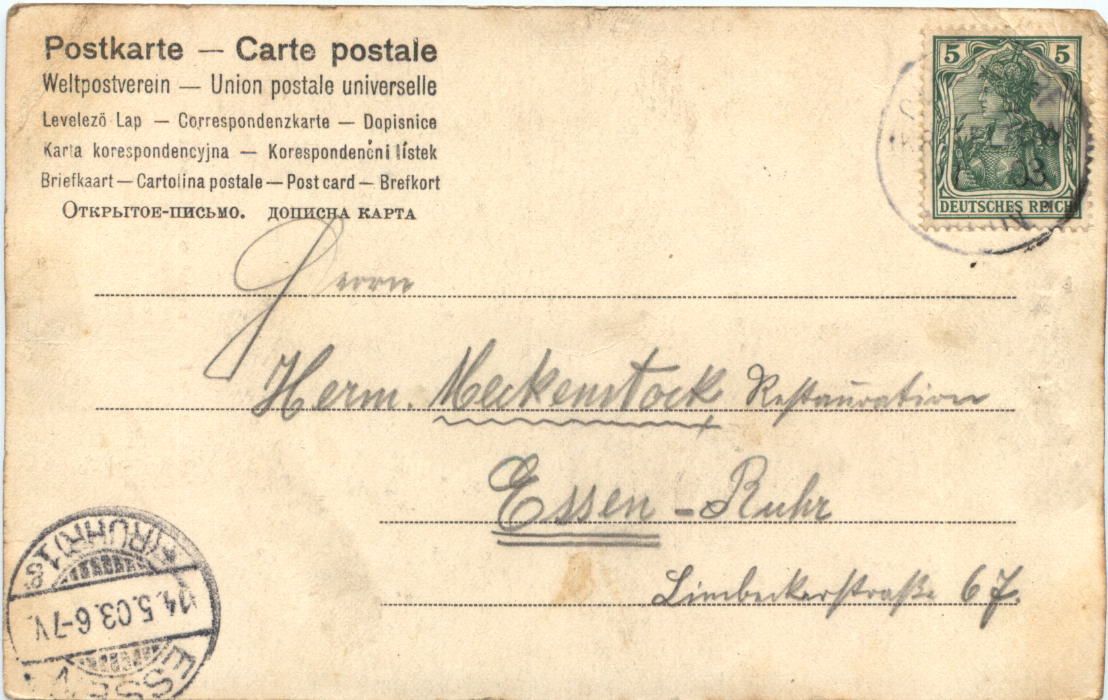 Postkarte — Carte postale
Weltpostverein — Union postale universelle
Levelező Lap — Correspondenzkarte — Dopisnice
Karta korespondencyjna — Korespondenční lístek
Briefkaart — Cartolina postale — Post card — Brefkort
Открытое-письмо. дописна карта
5 5
DEUTSCHES REICH
03
Herrn
Herm. Meckenstock Restauration
Essen - Ruhr
Limbeckerstraße 67.
ESSEN
14.5.03.6-7V.
*(RUHR)1